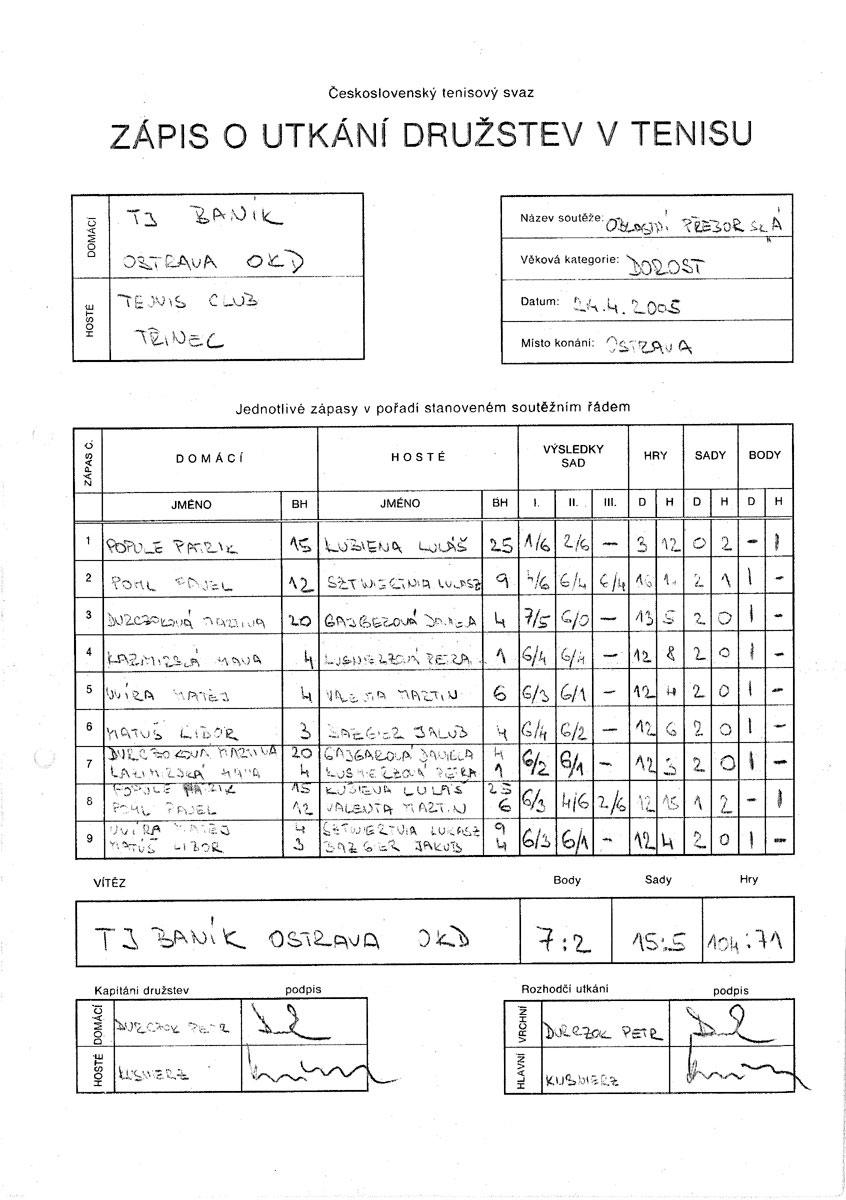 Československý tenisový svaz
ZÁPIS O UTKÁNÍ DRUŽSTEV V TENISU
DOMÁCÍ TJ BANÍK
OSTRAVA OKD
HOSTÉ TENNIS CLUB
TŘINEC
Název soutěže: OBLASTNÍ PŘEBOR
Věková kategorie: DOROST
Datum: 24.4.2005
Místo konání: OSTRAVA
Jednotlivé zápasy v pořadí stanoveném soutěžním řádem
ZÁPAS Č. DOMÁCÍ HOSTÉ VÝSLEDKY SAD HRY SADY BODY
JMÉNO BH JMÉNO BH I. II. III. D H D H D H
1 POPULE PATRIK 15 KUBIENA LUKÁŠ 25 1/6 2/6 – 3 12 0 2 – 1
2 POHL PAVEL 12 SZTWIERTNIA LUKASZ 9 4/6 6/4 6/4 16 14 2 1 1 –
3 DURCZOKOVÁ MARTINA 20 GAJGEROVÁ DANIELA 4 7/5 6/0 – 13 5 2 0 1 –
4 KAZMIRSKÁ HANA 4 KUSNIERZOVÁ PETRA 1 6/4 6/4 – 12 8 2 0 1 –
5 UVÍRA MATĚJ 4 VALENTA MARTIN 6 6/3 6/1 – 12 4 2 0 1 –
6 MATUŠ LIBOR 3 BAZGIER JAKUB 4 6/4 6/2 – 12 6 2 0 1 –
7 DURCZOKOVÁ MARTINA 20 GAJGAROVÁ DANIELA 4 6/2 6/1 – 12 3 2 0 1 –
KAZMIRSKÁ HANA 4 KUSNIERZOVÁ PETRA 1
8 POPULE PATRIK 15 KUBIENA LUKÁŠ 25 6/3 4/6 2/6 12 15 1 2 – 1
POHL PAVEL 12 VALENTA MARTIN 6
9 UVÍRA MATĚJ 4 SZTWIERTNIA LUKASZ 9 6/3 6/1 – 12 4 2 0 1 –
MATUŠ LIBOR 3 BAZGIER JAKUB 4
VÍTĚZ Body Sady Hry
TJ BANÍK OSTRAVA OKD 7:2 15:5 104:71
Kapitáni družstev podpis Rozhodčí utkání podpis
DOMÁCÍ DURCZOK PETR VRCHNÍ DURCZOK PETR
HOSTÉ KUSNIERZ HLAVNÍ KUSNIERZ